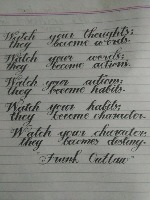 Watch your thoughts;
they become words.
Watch your words;
they become actions.
Watch your actions;
they become habits.
Watch your habits;
they become character.
Watch your character;
they becomes destiny.
"Frank Outlaw"